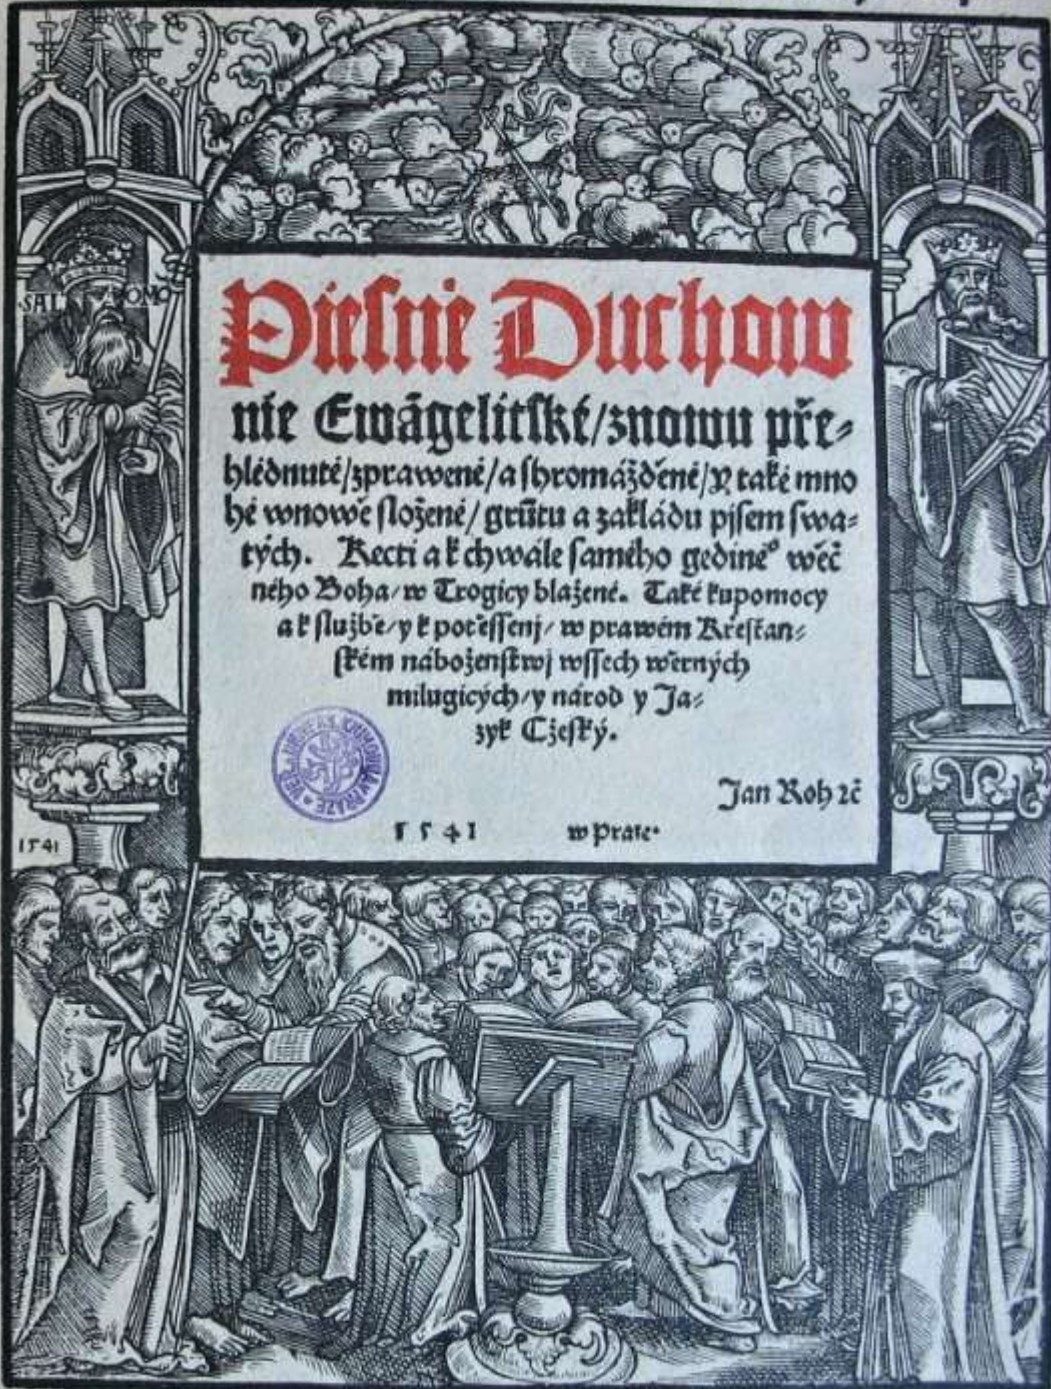 SAL OMO
Piesnĕ Duchow
nie Ewāgelitſké/znowu pře⸗
hlédnuté/zprawené/a ſhromážděné/y také mno
hé wnowě ſložené/ grūtu a základu pjſem ſwa⸗
tých. Kecti a k chwále ſamého gediné⁰ wěč
ného Boha/w Trogicy blažené. Také kupomocy
a k ſlužbě/y k potěſſenj/ w prawém Křeſťan⸗
ſkém náboženſtwj wſſech wěrných
milugicých/y národ y Ja⸗
zyk Cžeſký.
Jan Roh ꝛč
1541 w Praze·
1541